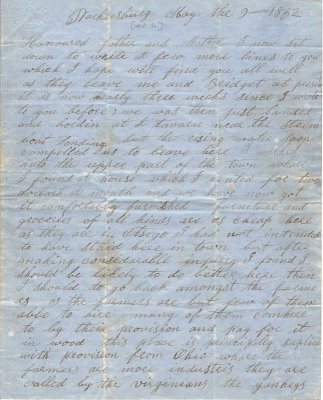 Parkersburg May the 9 - 1852
Honoured father and Mother I now sit
down to write a few more lines to you
which I hope will find you all well
as they leave me and Bridget at presen
it is now nearly three weeks since I wrote
to you before we was then just landed
and bordin at a tavern near the steam
boat landing but the rising water soon
compelled us to leave here
into the upper part of the town where
I found a house which I rented for two
dolears a month and we have now got
it comfortably furnished furniture and
groceries of all kinds are as cheap here
as they are in Otsego I had not intended
to have staid here in town but after
making considearable inquirey I found I
should be likely to do better here then
I should to go back amongst the farme
rs as the farmers are but few of them
able to hire many of them comhere
to by their provision and pay for it
in wood this place is principally suplied
with provision from Ohio whare the
farmers are more industers they are
called by the virginians the yankeys